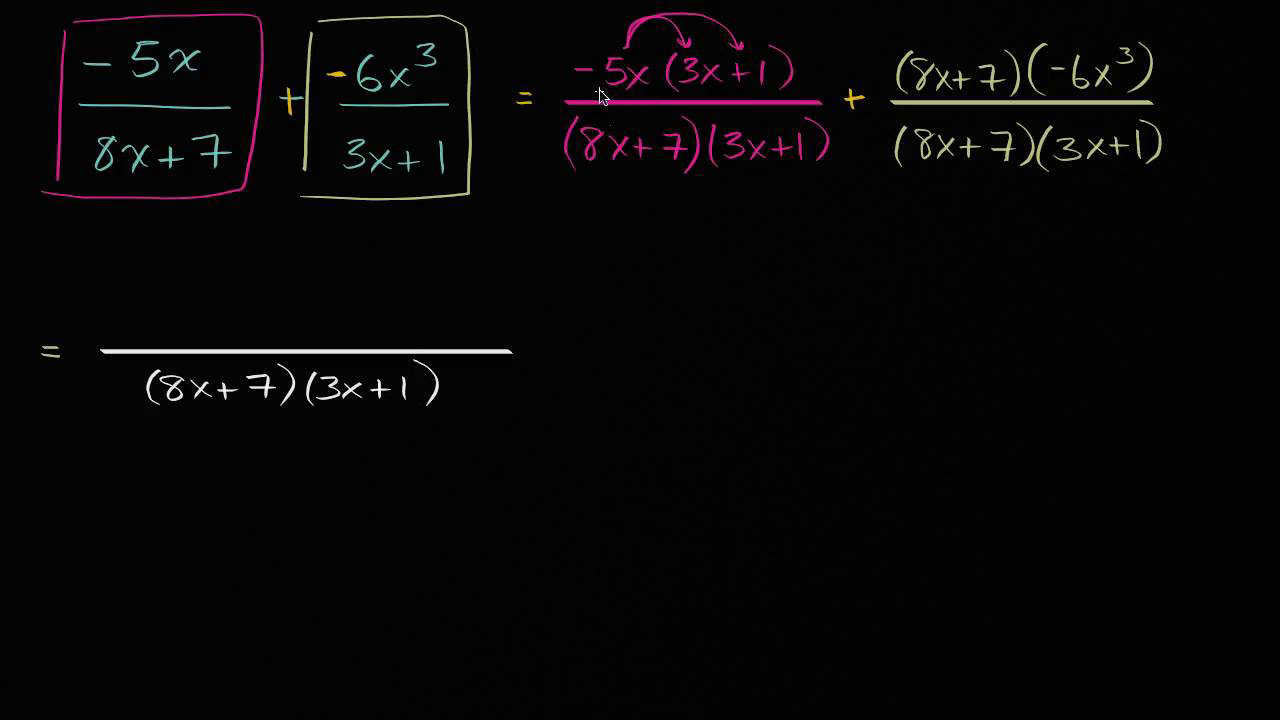 -5x/(8x+7) + -6x³/(3x+1) = -5x(3x+1)/((8x+7)(3x+1)) + (8x+7)(-6x³)/((8x+7)(3x+1))
= /((8x+7)(3x+1))